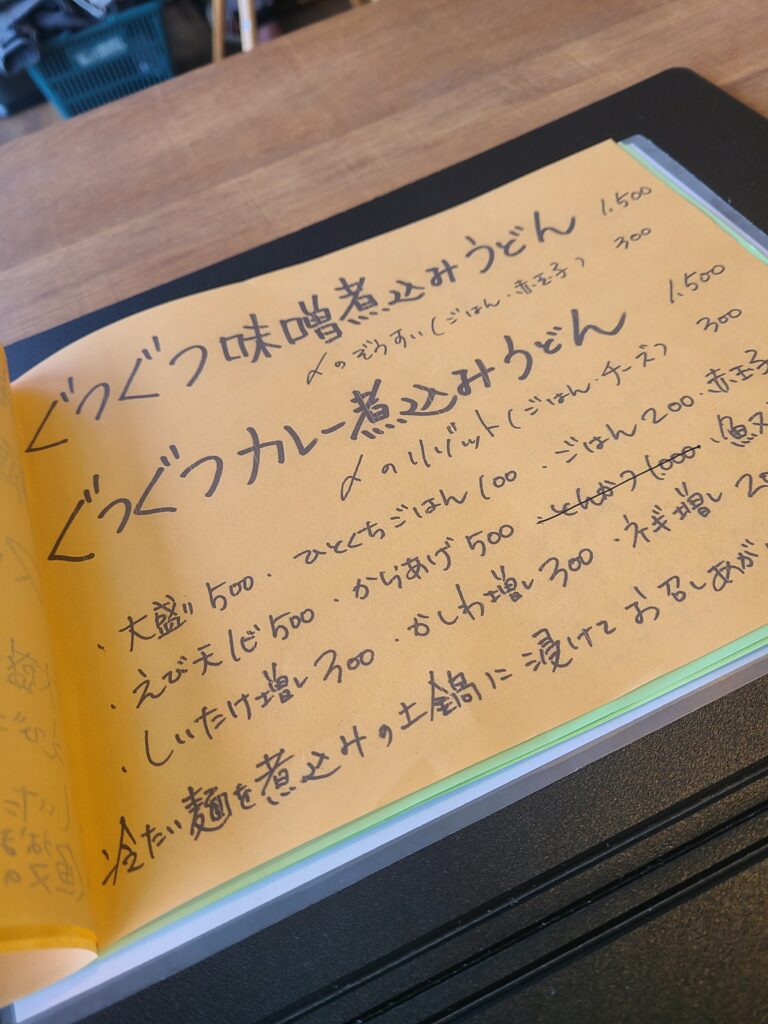 ぐつぐつ味噌煮込みうどん 1.500
〆のぞうすい(ごはん・赤玉子) 300
ぐつぐつカレー煮込みうどん 1.500
〆のリゾット(ごはん・チーズ) 300
・大盛り500・ひとくちごはん100・ごはん200・赤玉子
・えび天1ピ500・からあげ500・とんかつ1.000・魚又
・しいたけ増し300・かしわ増し300・ネギ増し20
冷たい麺を煮込みの土鍋に浸けてお召しあがり